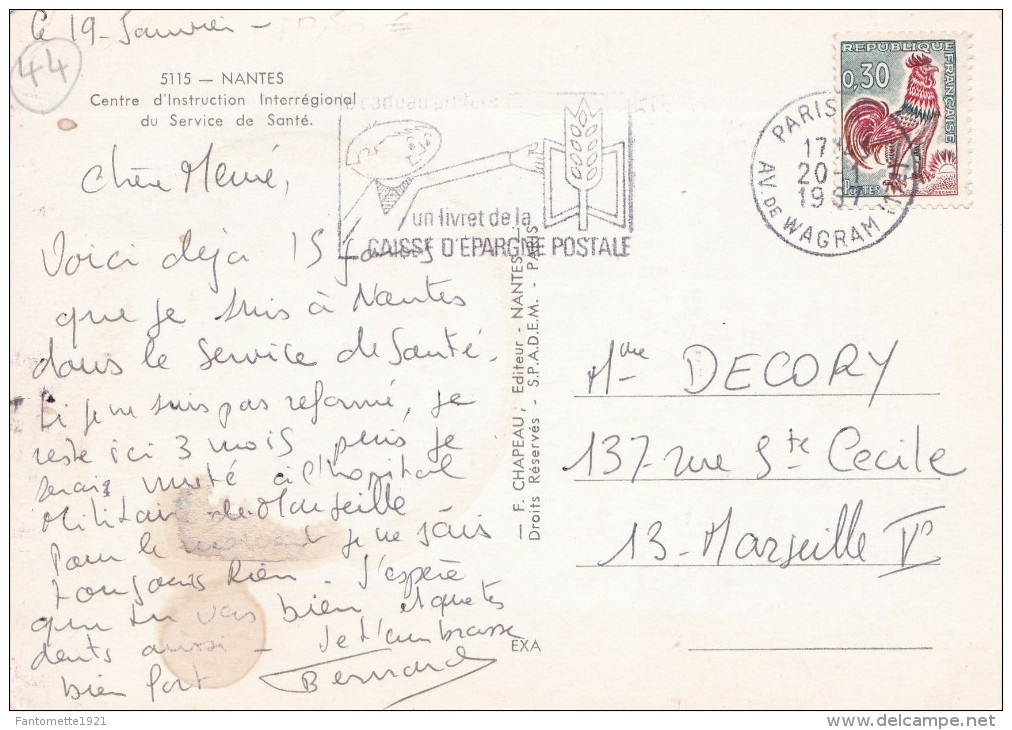 le 19 Janvier -
44
5115 — NANTES
Centre d'Instruction Interrégional
du Service de Santé.
Chère Mémé,
Voici déjà 15 jours
que je suis à Nantes
dans le Service de Santé.
Si je ne suis pas reformé, je
reste ici 3 mois puis je
serais muté à l'hopital
Militaire de Marseille
Pour le moment je ne sais
toujours Rien. J'espère
que tu vas bien et que tes
dents aussi - Je t'embrasse
bien fort Bernard
un livret de la
CAISSE D'EPARGNE POSTALE
— F. CHAPEAU, Editeur - NANTES —
Droits Réservés - S.P.A.D.E.M. - PARIS
EXA
REPUBLIQUE FRANÇAISE
0,30
POSTES
PARIS
17
20-1
1967
AV. DE WAGRAM
Mme DECORY
137 - rue Ste Cecile
13 - Marseille Ve
Fantomette1921
www.delcampe.net